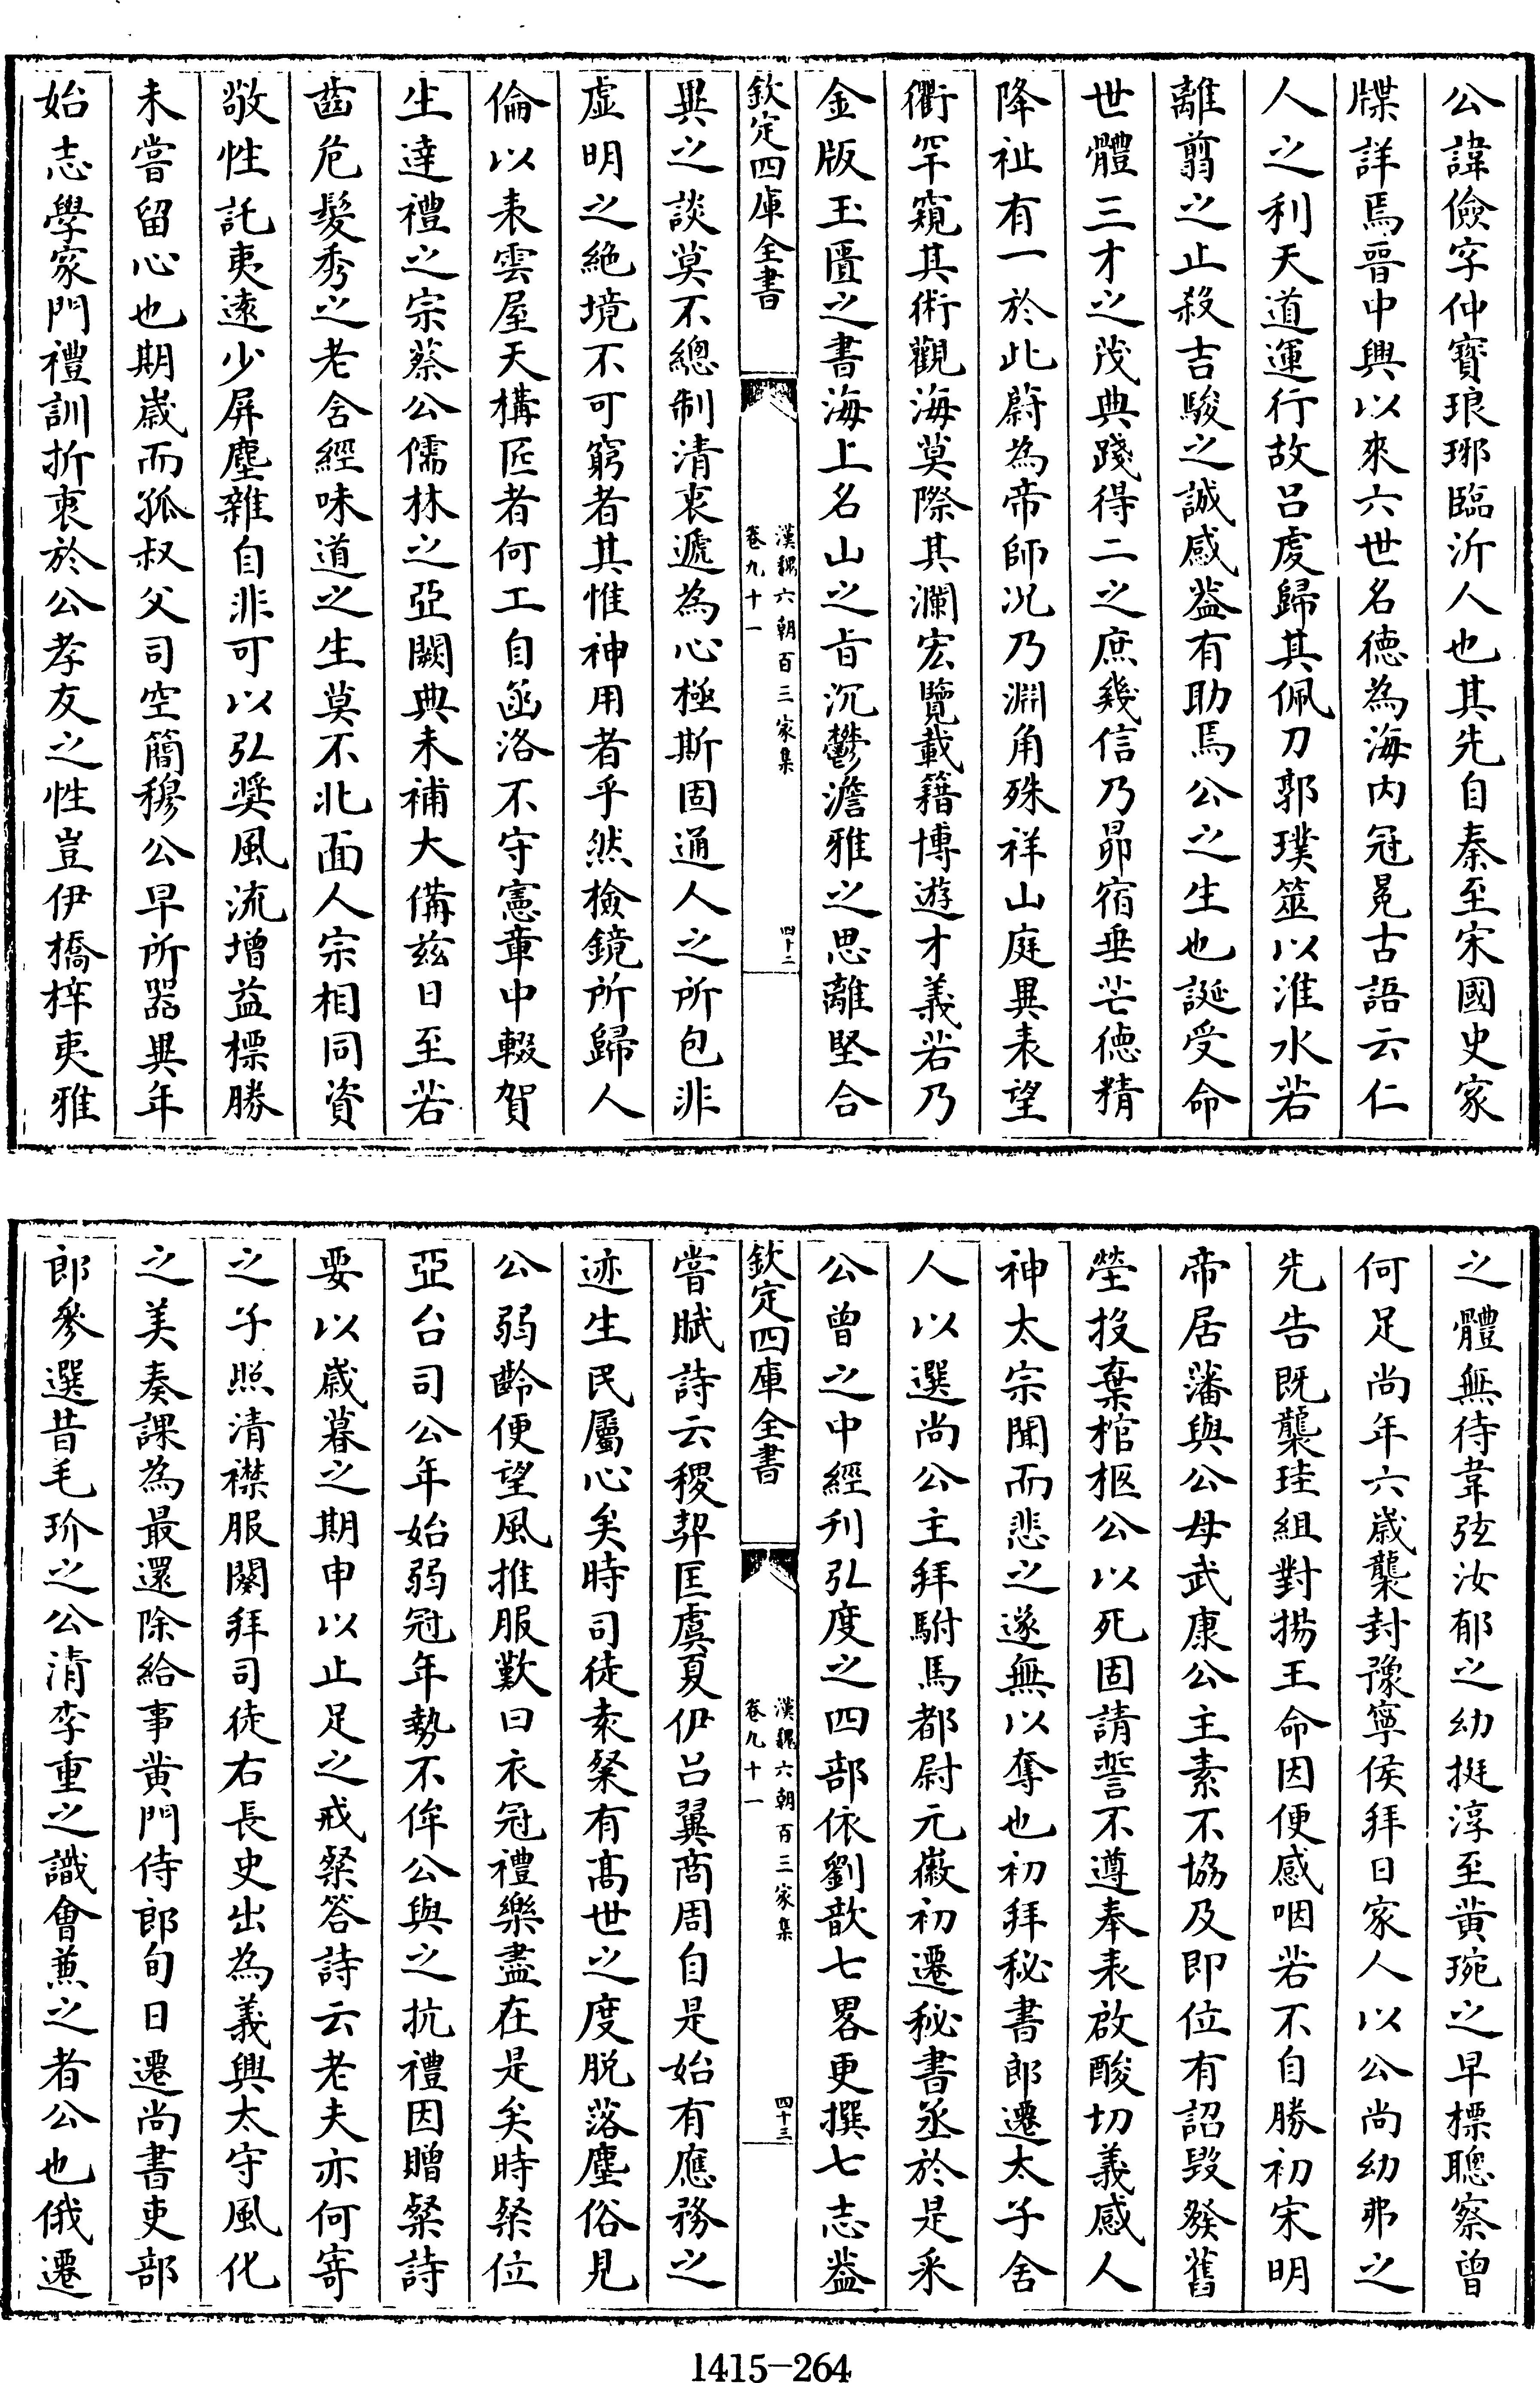 公諱儉字仲寳琅琊臨沂人也其先自秦至宋國史家
牒詳焉晉中興以來六世名德為海内冠冕古語云仁
人之利天道運行故呂䖍歸其佩刀郭璞筮以淮水若
離翦之止殺吉駿之誠感葢有助焉公之生也誕受命
世體三才之茂典踐得二之庶幾信乃昴宿垂芒德精
降祉有一於此蔚為帝師况乃淵角殊祥山庭異表望
衢罕窺其術觀海莫際其瀾宏覽載籍博遊才義若乃
金版玉匱之書海上名山之旨沉鬱澹雅之思離堅合
欽定四庫全書
漢魏六朝百三家集
卷九十一
四十二
異之談莫不總制清衷遞為心極斯固通人之所包非
虚明之絶境不可窮者其惟神用者乎然檢鏡所歸人
倫以表雲屋天構匠者何工自函洛不守憲章中輟賀
生達禮之宗蔡公儒林之亞闕典未補大備兹日至若
齒危髮秀之老含經味道之生莫不北面人宗相同資
敬性託夷逺少屏塵雜自非可以弘奬風流增益標勝
未嘗留心也期嵗而孤叔父司空簡穆公早所器異年
始志學家門禮訓折衷於公孝友之性豈伊橋梓夷雅
之體無待韋弦汝郁之幼挺淳至黄琬之早標聰察曾
何足尚年六歳襲封豫寧侯拜日家人以公尚幼弗之
先告既襲珪組對揚王命因便感咽若不自勝初宋明
帝居潘與公母武康公主素不協及即位有詔毁發舊
塋投棄棺柩公以死固請誓不遵奉表啟酸切義感人
神太宗聞而悲之遂無以奪也初拜秘書郎遷太子舍
人以選尚公主拜駙馬都尉元徽初遷秘書丞於是采
公曾之中經刋弘度之四部依劉歆七畧更撰七志葢
欽定四庫全書
漢魏六朝百三家集
卷九十一
四十三
嘗賦詩云稷契匡虞夏伊吕翼商周自是始有應務之
迹生民屬心矣時司徒袁粲有髙世之度脱落塵俗見
公弱齡便望風推服歎曰衣冠禮樂盡在是矣時粲位
亞台司公年始弱冠年勢不侔公與之抗禮因贈粲詩
要以歳暮之期申以止足之戒粲答詩云老夫亦何寄
之子照清襟服闋拜司徒右長史出為義興太守風化
之美奏課為最還除給事黄門侍郎旬日遷尚書吏部
郎參選昔毛玠之公清李重之識會兼之者公也俄遷
1415-264